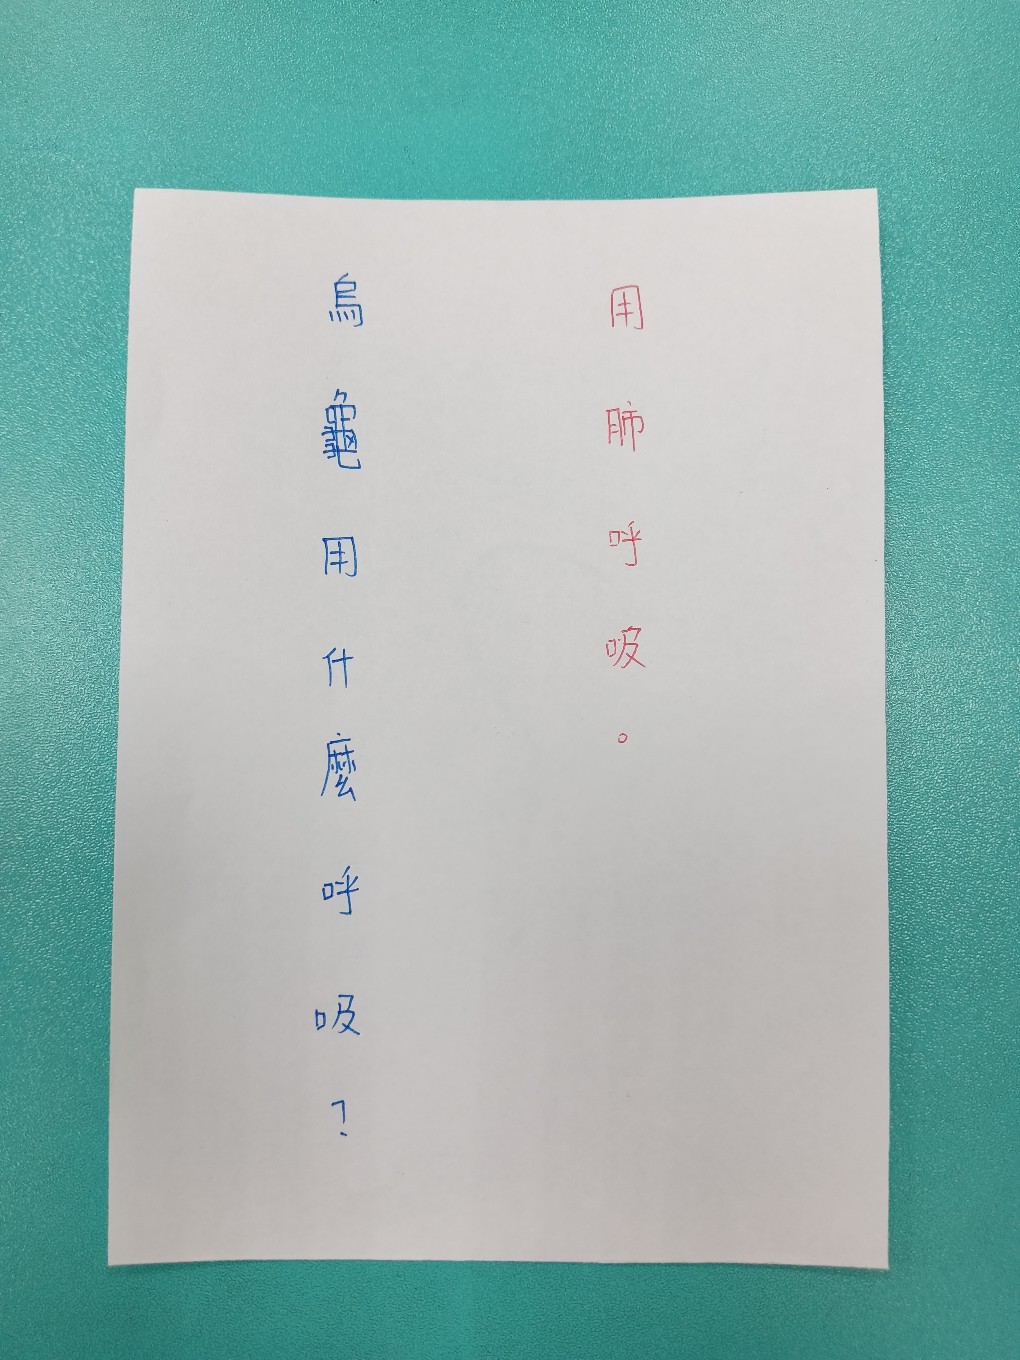 烏龜用什麼呼吸？
用肺呼吸。